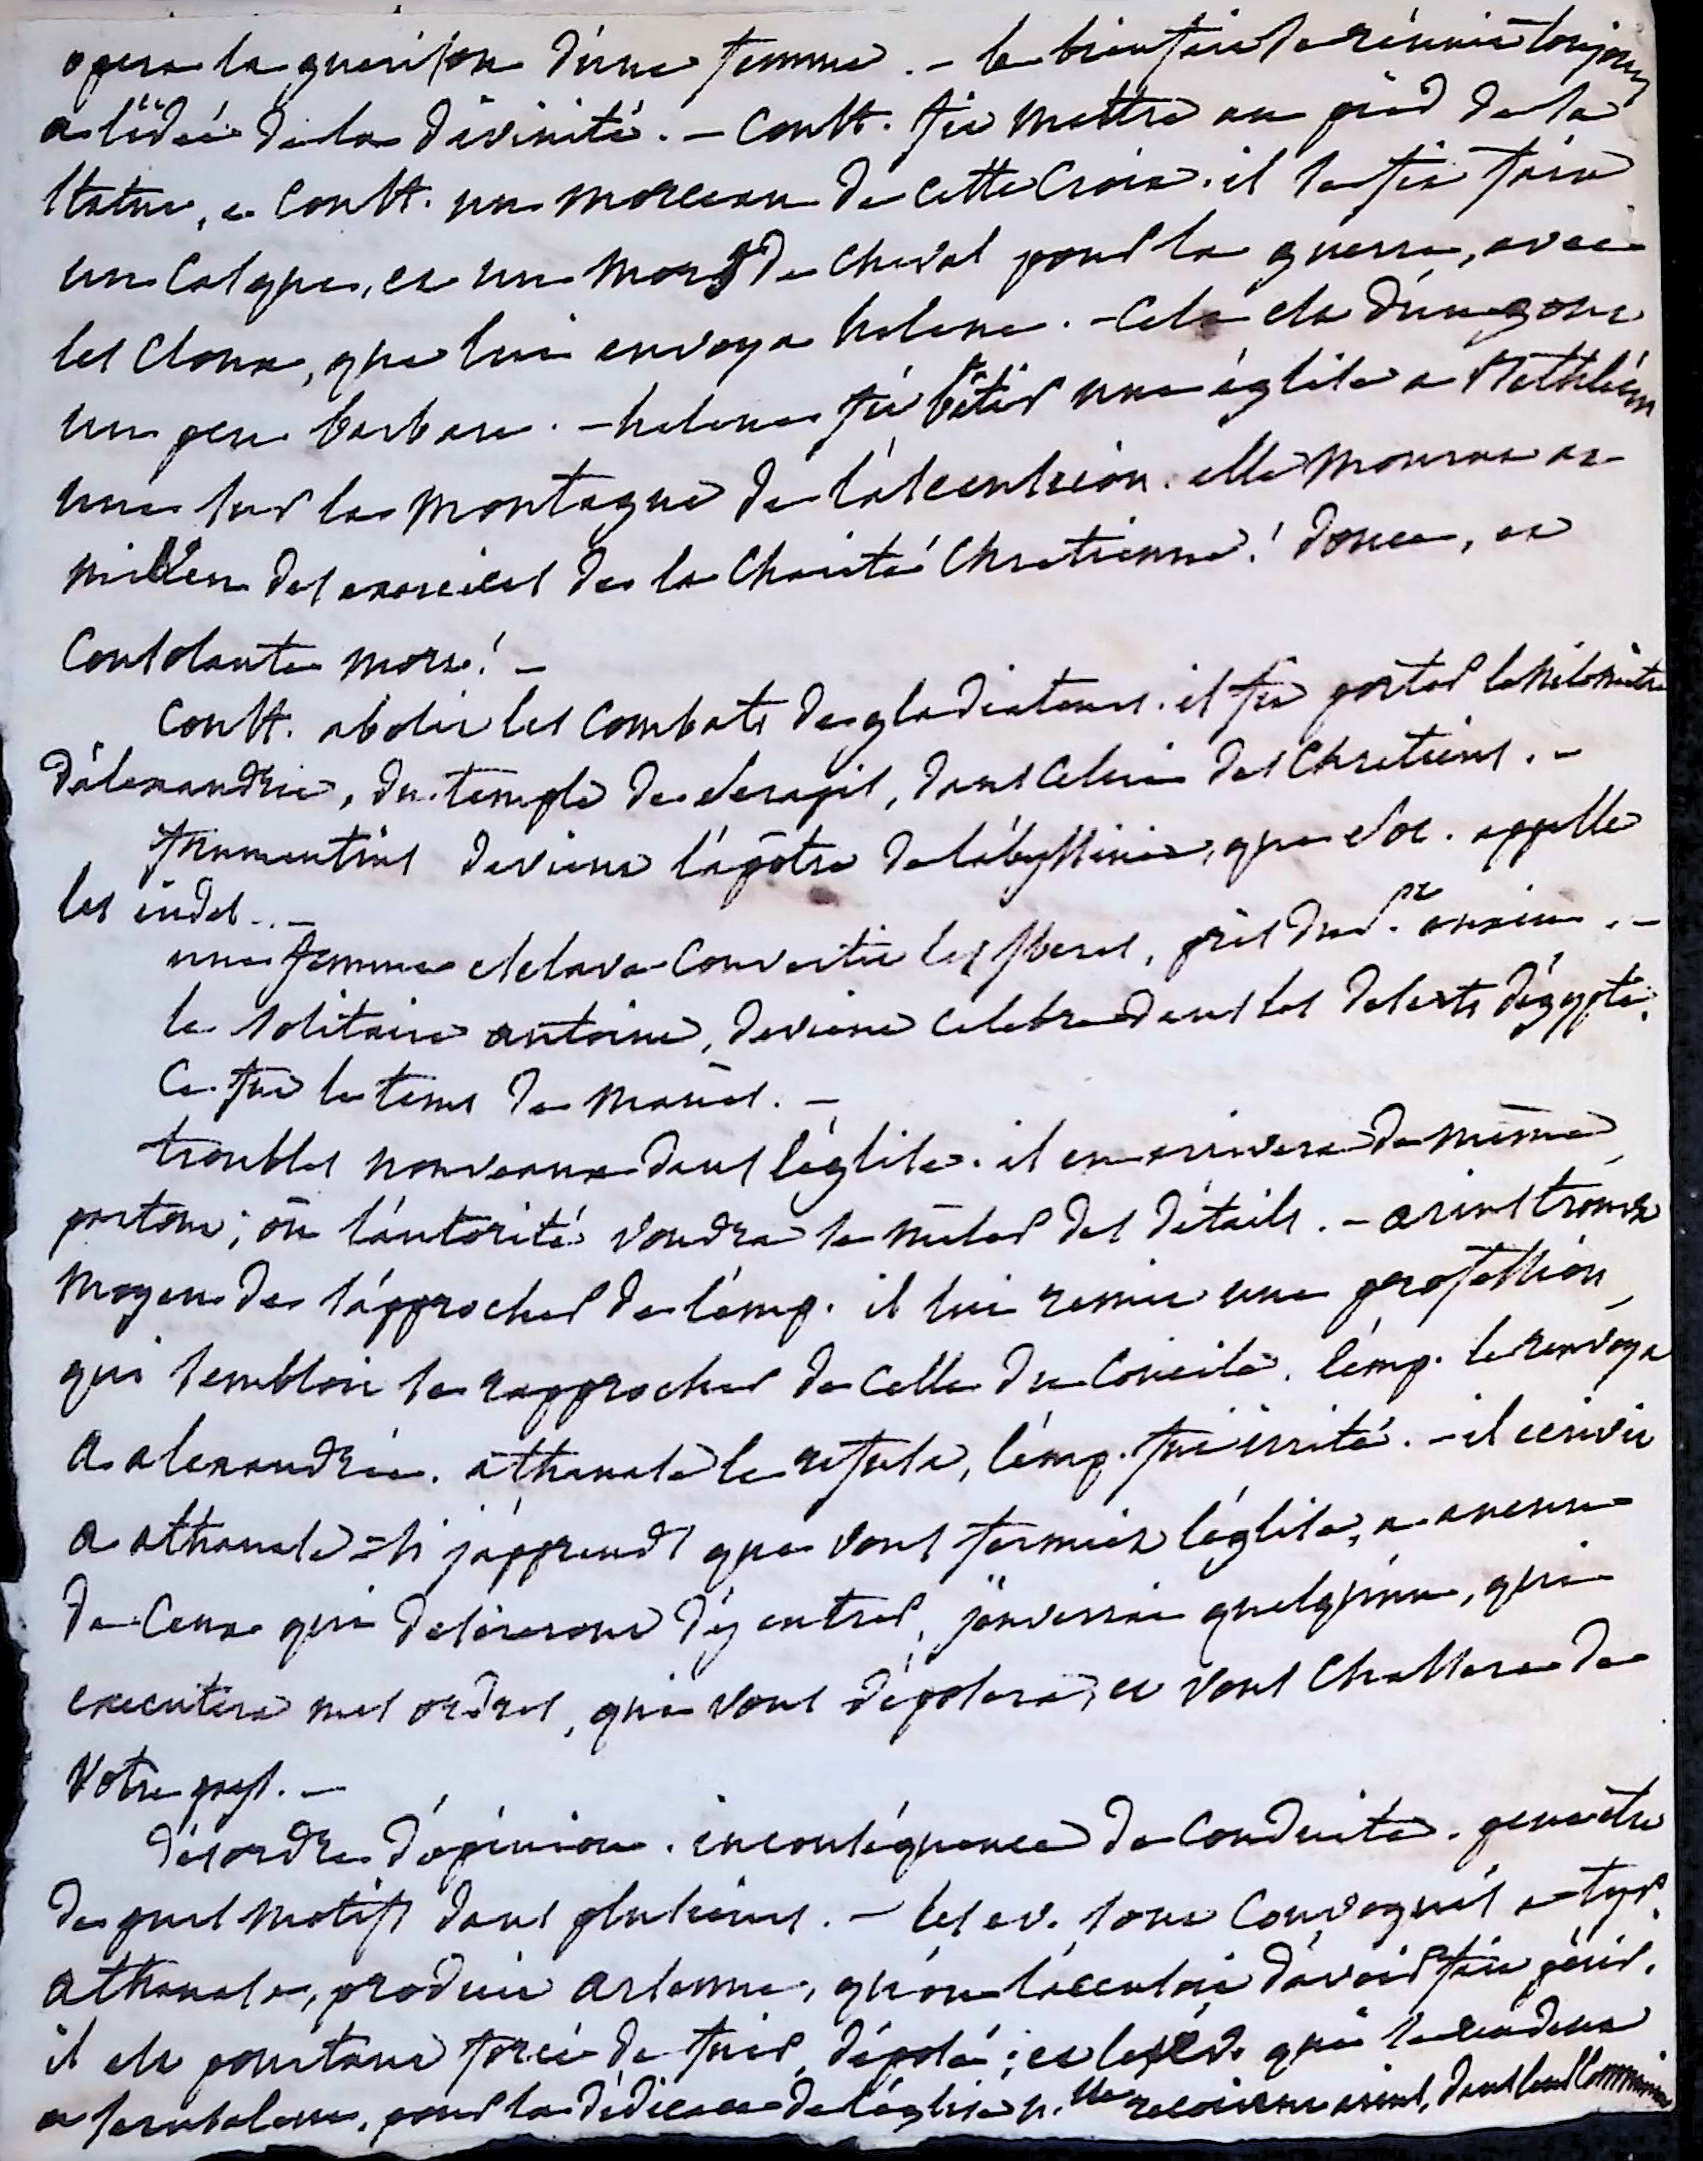 opera la guerison d'une femme. - le bienfait se réunit toujours
a l'idée de la divinité. - Const. fit mettre au pied de sa
statue, a Const. un morceau de cette Croix. il se fit faire
un Casque, et un mors de cheval pour la guerre, avec
les Cloux, que lui envoya helene. - Cela est d'un gout
un peu barbare. - helene fit bâtir une église a Bethléem
une sur la montagne de l'ascension. elle mourut au
milieu des exercices de la Charité Chretienne! douce, et
Consolante mort! -
Const. abolit les Combats de gladiateurs. il fit porter le nilometre
d'alexandrie, du temple de serapis, dans Celui des Chretiens. -
frumentius devient l'apôtre de l'abyssinie, que Soc. appelle
les indes. -
une femme esclave Convertit les Iberes, près du P. euxin. -
le solitaire antoine, devient Celebre dans les deserts d'égypte.
Ce fut le tems de manès. -
troubles nouveaux dans l'église. il en arrivera de même
partout, où l'autorité voudra se mêler des détails. - arius trouva
moyen de s'approcher de l'emp. il lui remit une profession
qui sembloit se rapprocher de Celle du Concile. l'emp. le renvoya
a alexandrie. athanase le refusa, l'emp. fut irrité. - il ecrivit
a athanase = si j'apprends que vous fermiez l'église, a aucun
de Ceux qui desireront d'y entrer, j'enverrai quelqu'un, qui
executera mes ordres, qui vous déposera, et vous Chassera de
Votre pays. -
désordre d'opinion. inconséquence de Conduite. peut etre
de purs motifs dans plusieurs. - les ev. sont Convoqués a tyr.
athanase, produit arsenne, qu'on l'accusoit d'avoir fait périr.
il est pourtant forcé de fuir, déposé; et les év. qui se rendent
a Jerusalem, pour la dédicace de l'église n.lle recoivent arius, dans leur Communion